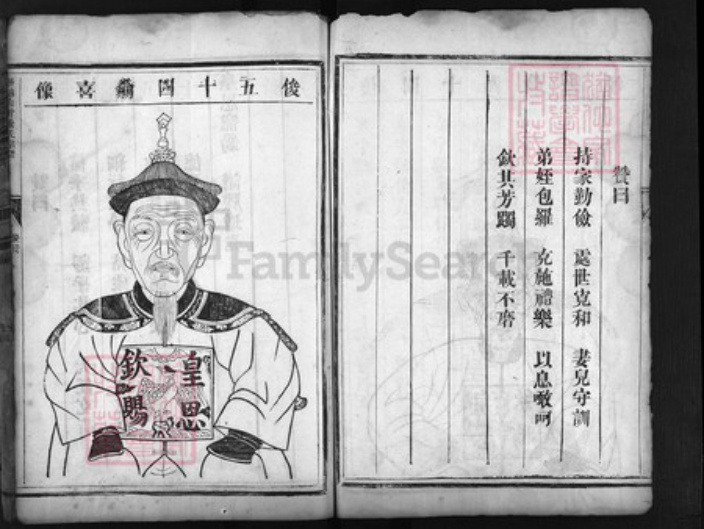 贊曰
持家勤儉 處世克和 妻兒守訓
弟姪包羅 克施禮樂 以息呶呵
欽其芳躅 千載不磨
俊五十四翁喜像
皇恩
欽賜
FamilySearch